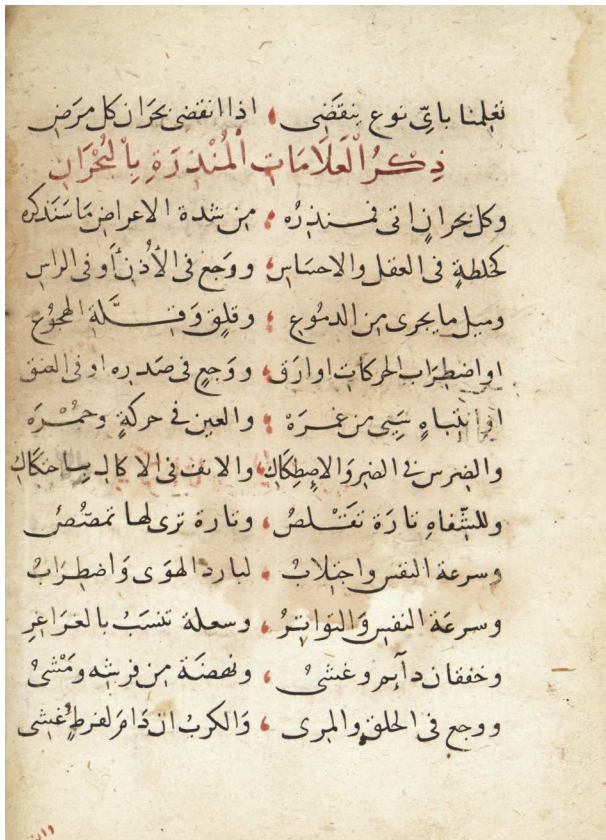 تعلمنا بايّ نوع ينقضى ، اذا انقضى بحران كل مرض
ذِكْرُ الْعَلَامَاتِ الْمُنْذِرَةِ بِالْبُحْرَانِ
وكل بحرانٍ اتى فمنذرُه ؛ من شدة الاعراض مَا سَنَذكره
كخلطةٍ فى العقل والاحسَاس ، ووَجع فى الأُذن أَو فى الراس
وميل ما يجرى من الدمُوع ؛ وقلقٍ وَقلَّة الهجُوع
او اضطرَاب الحركات او ارَق ، ووَجعٍ فى صَدره او فى العنق
او انتباهٍ سَيى من غمرَهْ ؛ والعين فى حركةٍ وحمْرَه
والضرس فى الضر وَالاصطكاك ، والانف فى الاكال باحتكاك
وللشّفاهِ تارَة تقَلصُ ، وتارة ترى لها تمصّصُ
وسرعة النفس واجتلابُ ، لبارد الهوَى وَاضطرَابُ
وسرعَة النفس وَالتواترُ ، وسعلة تنسَبُ بالغرَاغر
وخفقان دآيم وغشىُ ، ونهضَة من فرشه ومَشىُ
ووجع فى الحلق والمرى ، وَالكربُ ان دَامَ لفرط غشى